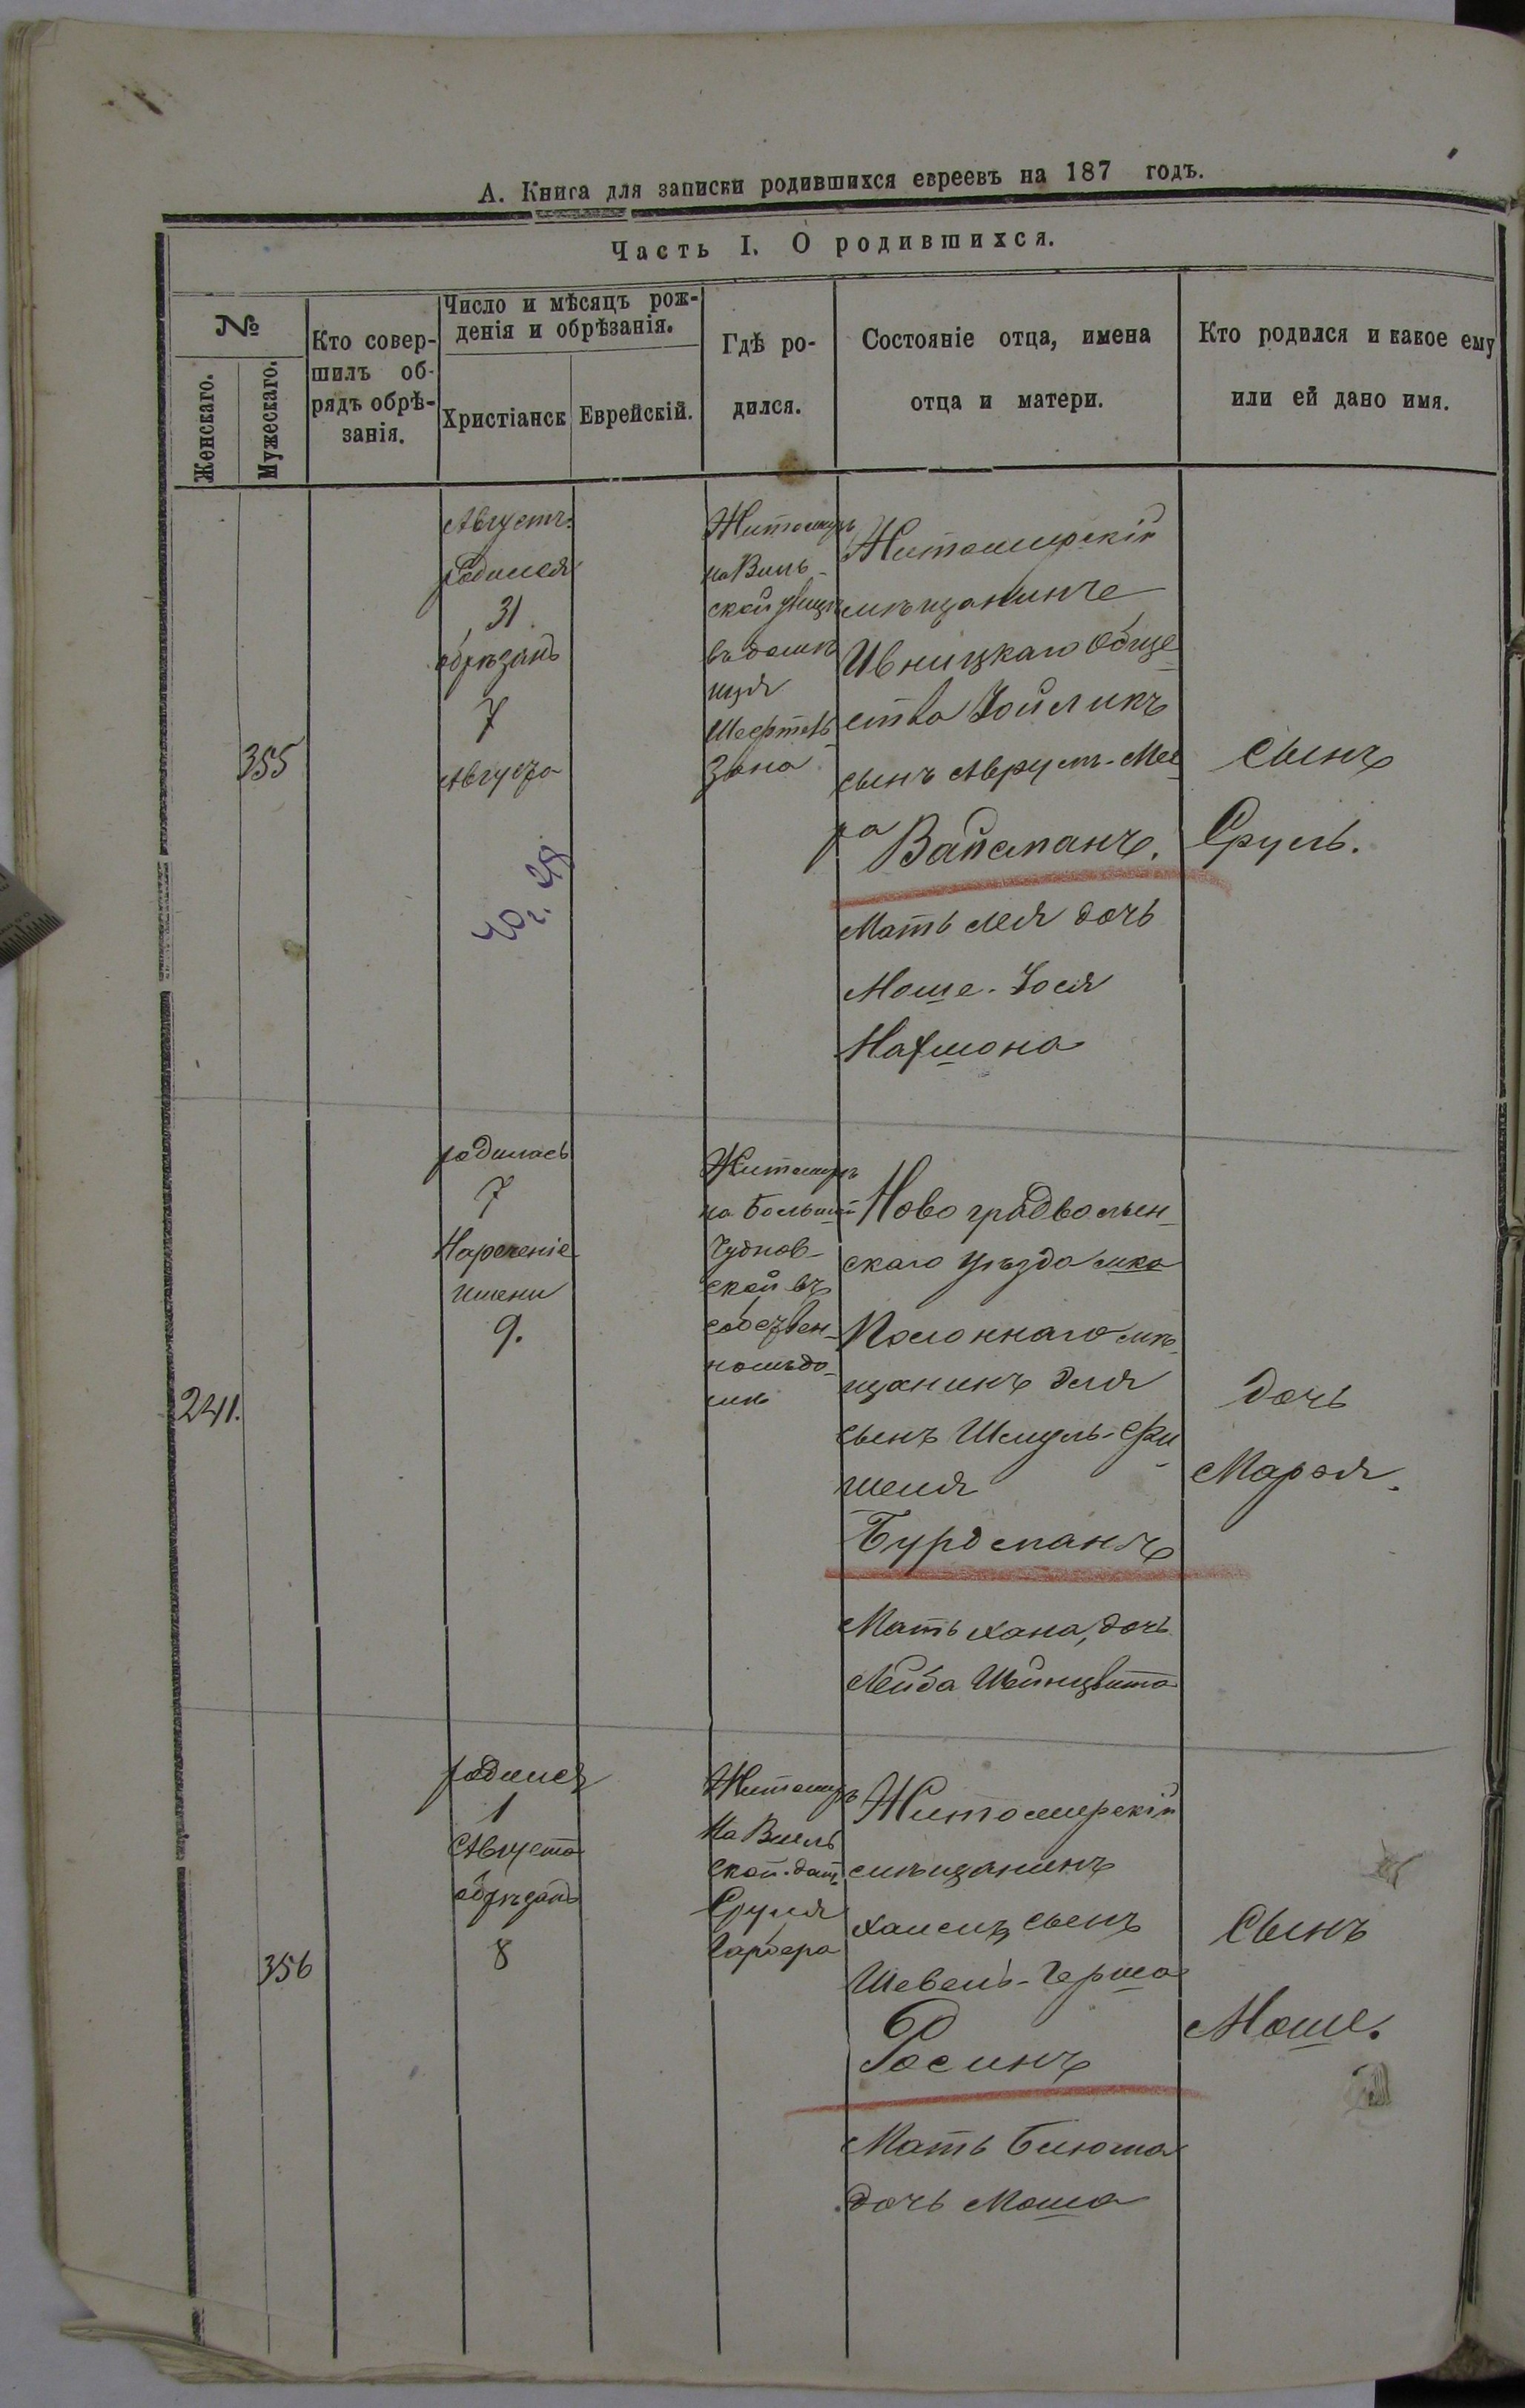 А. Книга для записки родившихся евреевъ на 187 годъ.
Часть I. О родившихся.
№
Женскаго.
Мужескаго.
Кто совер-
шилъ об-
рядъ обрѣ-
занія.
Число и мѣсяцъ рож-
денія и обрѣзанія.
Христіанск
Еврейскій.
Гдѣ ро-
дился.
Состояніе отца, имена
отца и матери.
Кто родился и какое ему
или ей дано имя.
355
Августъ.
родился
31.
обрѣзанъ
7
Августа
Житомиръ
на Виль-
ской улицѣ
въ домѣ
Зона
Житомирскій
мѣщанинъ
Ивницкаго обще-
ства Іойликъ
сынъ Аврумъ-Мее-
ра
Вайсманъ.
Мать Лея дочь
Моше-Іося
Нахмона
сынъ
Сруль.
241.
родилась
7
Нареченіе
имени
9.
Житомиръ
на Большой
Чуднов-
ской въ
собствен-
номъ до-
мѣ
Новоградволын-
скаго уѣзда мка
Полоннаго мѣ-
щанинъ Зеля
сынъ Шмуль-Фи-
шеля
Бурдманъ
Мать Хана, дочь
Лейба Шейнцвита
дочь
Марья.
356
родился
1
Августа
обрѣзанъ
8
Житомиръ
на Виль
ской. дом.
Сруля
Гарбера
Житомирскій
мѣщанинъ
Хаимъ, сынъ
Шевель-Герша
Росинъ
Мать Блюма
дочь Моша
Сынъ
Моше.